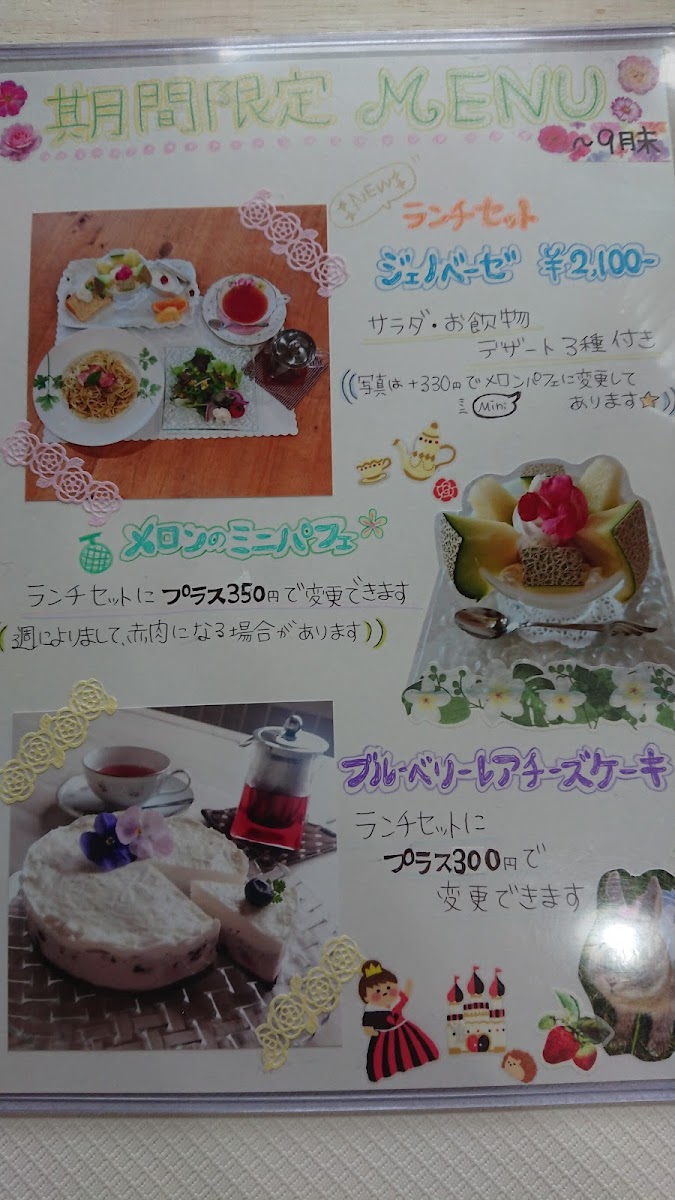 期間限定 MENU
～9月末
NEW
ランチセット
ジェノベーゼ ¥2,100-
サラダ・お飲物
デザート3種付き
((写真は+330円でメロンパフェに変更して
ミニ Mini あります☆))
メロンのミニパフェ
ランチセットにプラス350円で変更できます
(週によりまして、赤肉になる場合があります))
ブルーベリーレアチーズケーキ
ランチセットに
プラス300円で
変更できます